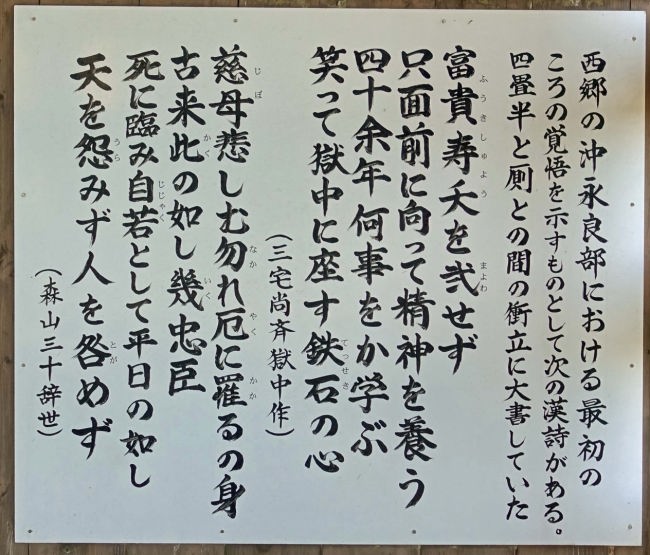 西郷の沖永良部における最初の
ころの覚悟を示すものとして次の漢詩がある。
四畳半と厠との間の衝立に大書していた
富貴寿夭を弐せず
ふうきしゅよう
まよわ
只面前に向って精神を養う
四十余年何事をか学ぶ
笑って獄中に座す鉄石の心
てっせき
(三宅尚斉獄中作)
慈母悲しむ勿れ厄に罹るの身
じぼ
なか
やく
かか
古来此の如し幾忠臣
かく
いく
死に臨み自若として平日の如し
じじゃく
天を怨みず人を咎めず
うら
とが
(森山三十辞世)